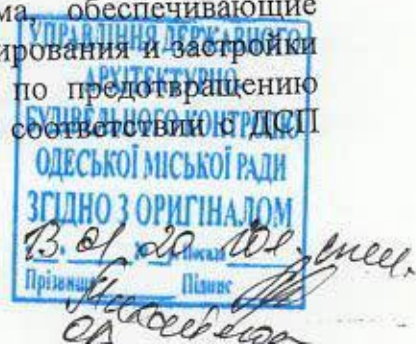 ма, обеспечивающие
ирования и застройки
по предотвращению
соответствии с ДСП
УПРАВЛІННЯ ДЕРЖАВНОГО
АРХІТЕКТУРНО-
БУДІВЕЛЬНОГО КОНТРОЛЮ
ОДЕСЬКОЇ МІСЬКОЇ РАДИ
ЗГІДНО З ОРИГІНАЛОМ
Посада
Прізвище Підпис